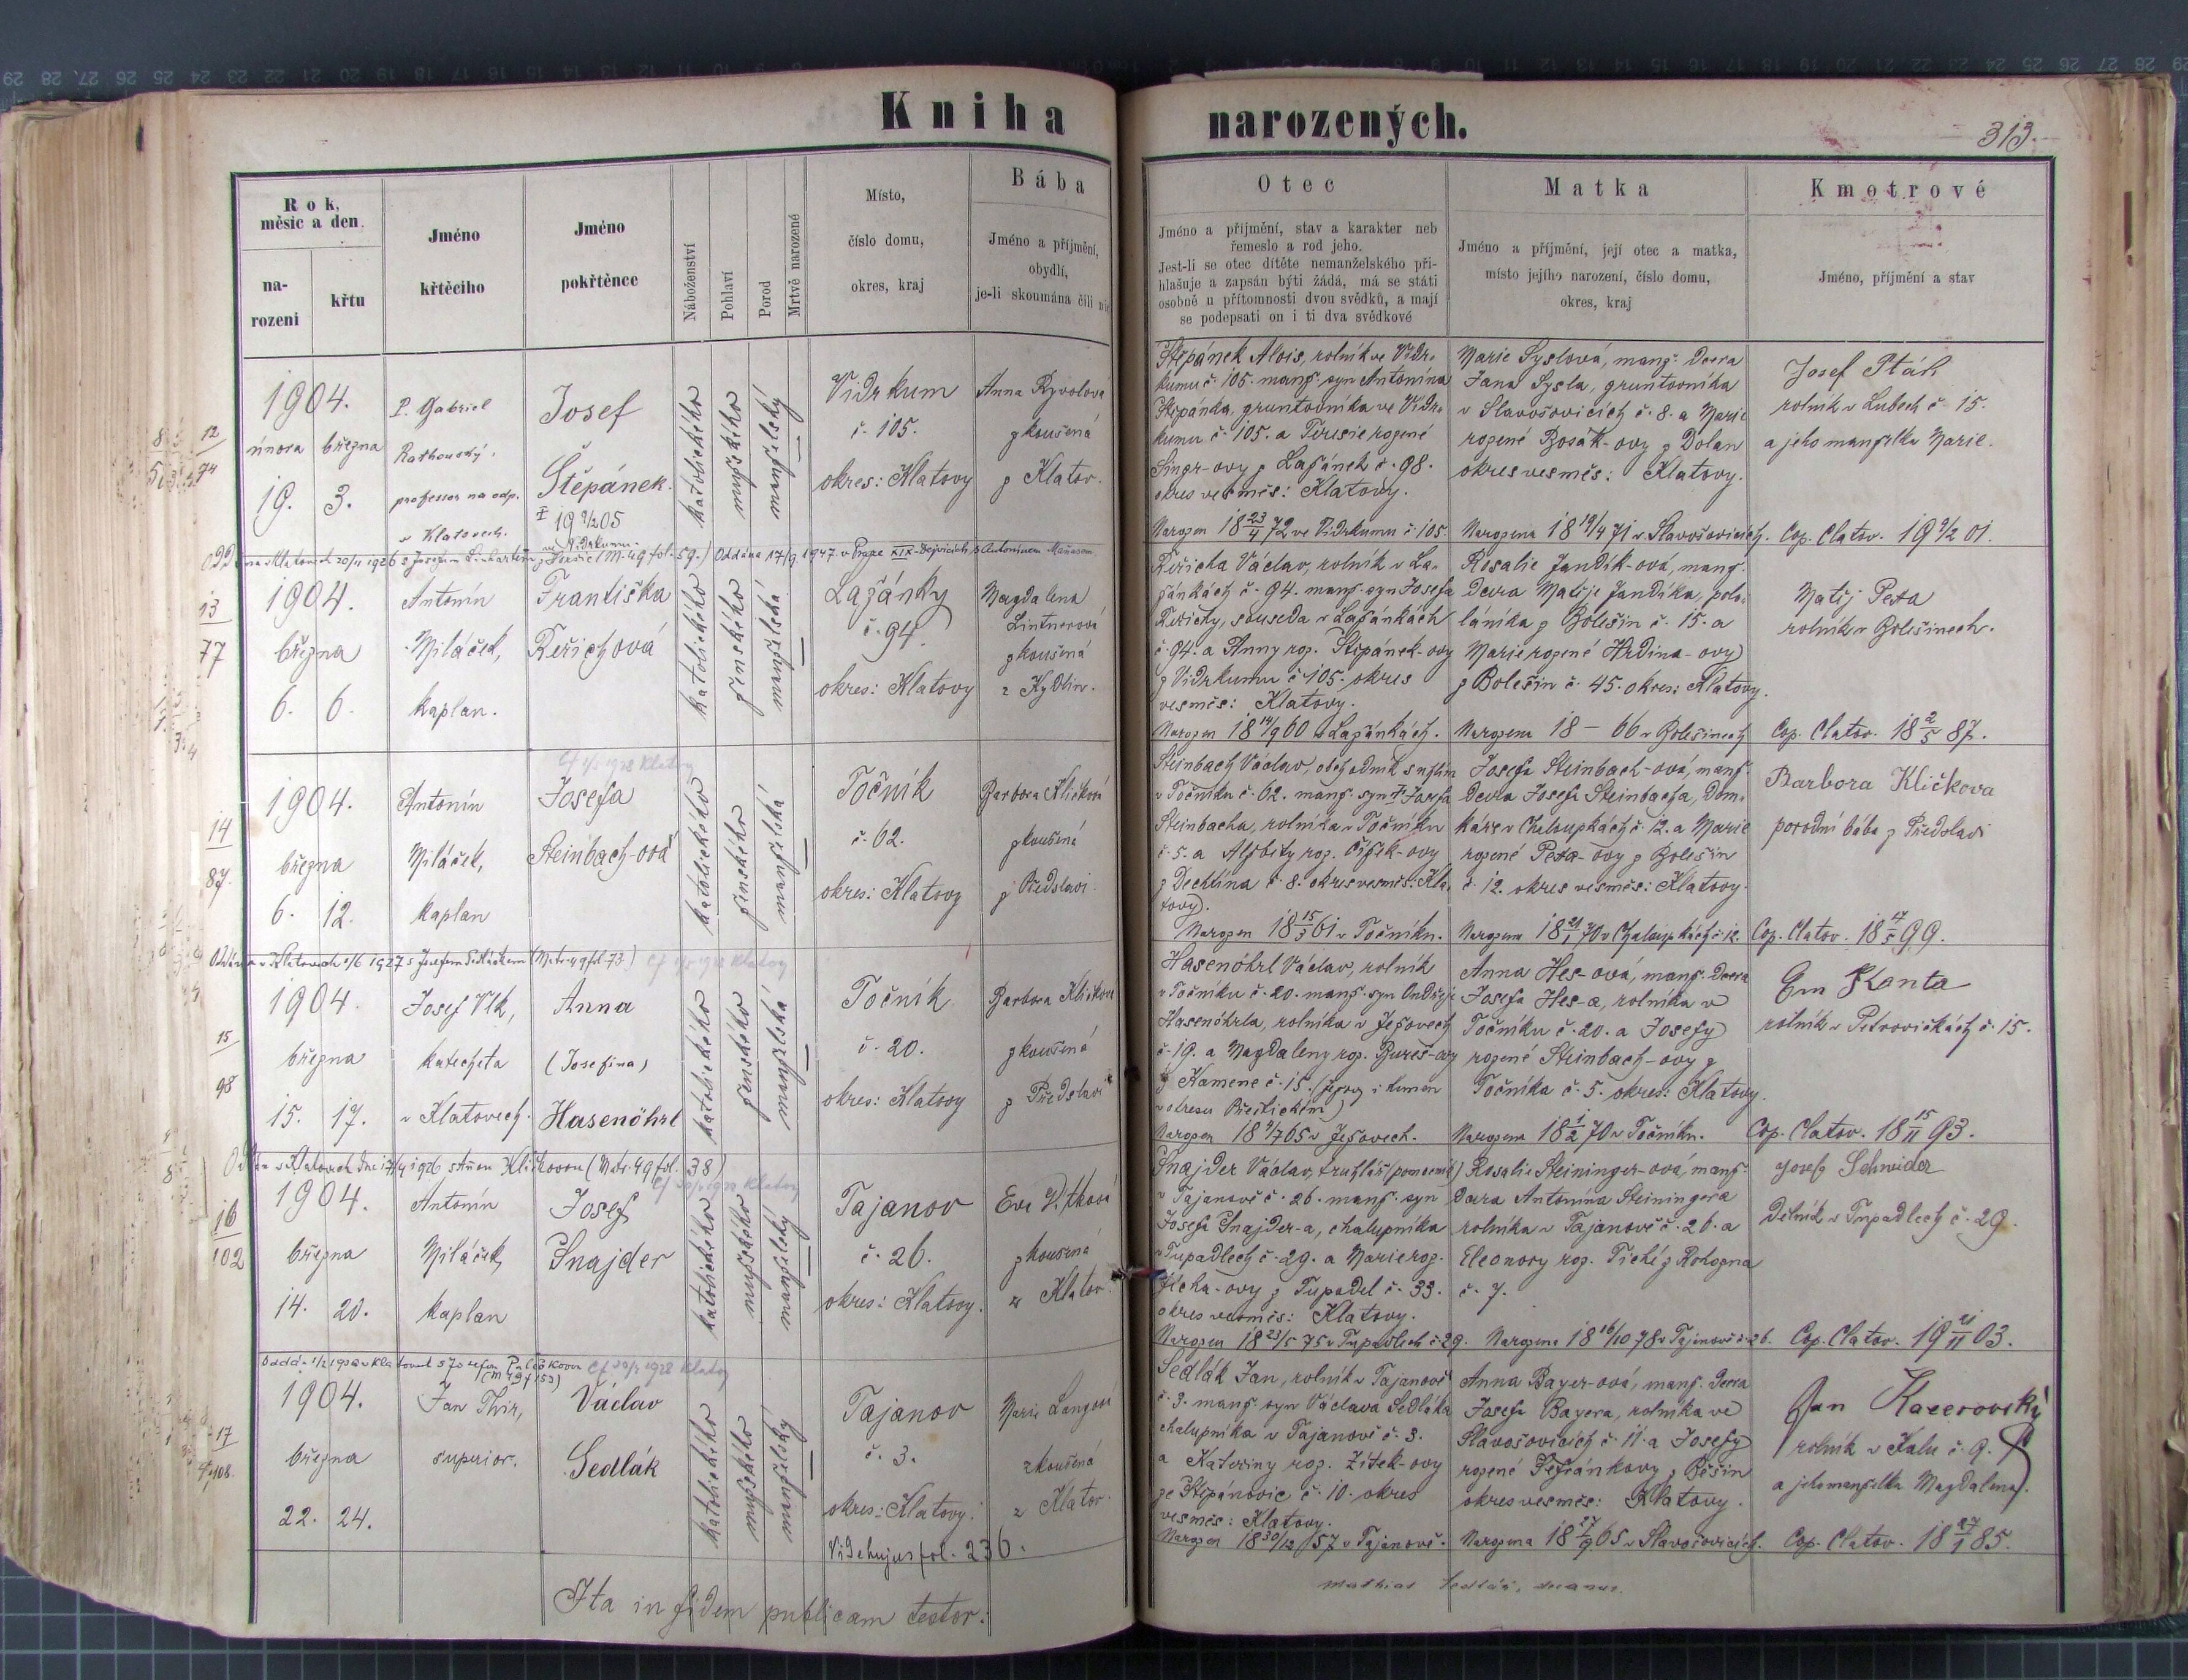 Kniha narozených.
313.
Rok, měsíc a den
narození
křtu
Jméno křtěcího
Jméno pokřtěnce
Náboženství
Pohlaví
Porod
Mrtvě narozené
Místo,
číslo domu,
okres, kraj
Bába
Jméno a příjmění,
obydlí,
je-li skoumána čili nic
Otec
Jméno a příjmění, stav a karakter neb
řemeslo a rod jeho.
Jest-li se otec dítěte nemanželského při-
hlašuje a zapsán býti žádá, má se státi
osobně u přítomnosti dvou svědků, a mají
se podepsati on i ti dva svědkové
Matka
Jméno a příjmění, její otec a matka,
místo jejího narození, číslo domu,
okres, kraj
Kmotrové
Jméno, příjmění a stav
12
74
1904.
února března
19. 3.
P. Gabriel
professor na odp.
v Klatovech.
Josef
Štěpánek.
katolického
mužského
manželský
Vidrkum
č. 105.
okres: Klatovy
Anna
zkoušená
z Klatov.
Štěpánek Alois, rolník ve Vidr-
kumu č. 105. manž. syn Antonína
Štěpánka, gruntovníka ve Vidr-
kumu č. 105. a Teresie rozené
Singr-ovy z Lažánek č. 98.
okres vesměs: Klatovy.
Narozen 18 23/4 72 ve Vidrkumu č. 105.
Marie Syslová, manž. dcera
Jana Sysla, gruntovníka
v Slavošovicích č. 8. a Marie
rozené Bosák-ovy z Dolan
okres vesměs: Klatovy.
Narozena 18 19/4 71 v Slavošovicích.
Josef Pták
rolník v Lubech č. 15.
a jeho manželka Marie.
Cop. Clatov. 19 9/2 01.
13
77
1904.
března
6. 6.
Antonín
Miláček,
kaplan.
Františka
Řeřichová
katolického
ženského
manželská
Lažánky
č. 94.
okres: Klatovy
Magdalena
Lintnerová
zkoušená
z Kydlin.
Řeřicha Václav, rolník v La-
žánkách č. 94. manž. syn Josefa
Řeřichy, souseda v Lažánkách
č. 94. a Anny roz. Štěpánek-ovy
z Vidrkumu č. 105. okres
vesměs: Klatovy.
Narozen 18 14/9 60 v Lažánkách.
Rosalie Jandík-ová, manž.
dcera Matěje Jandíka, polo-
láníka z Bolešin č. 15. a
Marie rozené Hrdina-ovy
z Bolešin č. 45. okres: Klatovy.
Narozena 18 — 66 v Bolešinech
Matěj
rolník v Bolešinech.
Cop. Clatov. 18 2/5 87.
14
87.
1904.
března
6. 12.
Antonín
Miláček,
kaplan
Josefa
Steinbach-ová
katolického
ženského
manželská
Točník
č. 62.
okres: Klatovy
Barbora Kličková
zkoušená
z Předslavi.
Steinbach Václav, obchodník s
v Točníku č. 62. manž. syn † Josefa
Steinbacha, rolníka v Točníku
č. 5. a Alžběty roz. Čížek-ovy
z Dechtína č. 8. okres vesměs: Kla-
tovy.
Narozen 18 15/3 61 v Točníku.
Josefa Steinbach-ová, manž.
dcera Josefa Steinbacha, dom-
káře v Chaloupkách č. 12. a Marie
z Bolešin
č. 12. okres vesměs: Klatovy.
Narozena 18 21/1 70 v Chaloupkách č. 12.
Barbora Kličkova
porodní bába z Předslavi
Cop. Clatov. 18 17/5 99.
15
98
1904.
března
15. 17.
Josef Vlk,
katecheta
v Klatovech.
Anna
(Josefina)
Hasenöhrl
katolického
ženského
manželská
Točník
č. 20.
okres: Klatovy
Barbora Kličková
zkoušená
z Předslavi
Hasenöhrl Václav, rolník
v Točníku č. 20. manž. syn Ondřeje
Hasenöhrla, rolníka v Ježovech
č. 19. a Magdaleny roz. Bureš-ovy
z Kamene č. 15.
v okresu Přeštickém)
Narozen 18 4/7 65 v Ježovech.
Anna Hes-ová, manž. dcera
Josefa Hes-a, rolníka v
Točníku č. 20. a Josefy
rozené Steinbach-ovy z
Točníka č. 5. okres: Klatovy.
Narozena 18 1/2 70 v Točníku.
Kanta
rolník v Petrovičkách č. 15.
Cop. Clatov. 18 15/11 93.
16
102
1904.
března
14. 20.
Antonín
Miláček,
kaplan
Josef
Šnajder
katolického
mužského
manželský
Tajanov
č. 26.
okres: Klatovy.
zkoušená
z Klatov.
Šnajder Václav, truhlář (pomocník)
v Tajanově č. 26. manž. syn
Josefa Šnajder-a, chalupníka
v Tupadlech č. 29. a Marie roz.
z Tupadel č. 33.
okres vesměs: Klatovy.
Narozen 18 23/5 75 v Tupadlech č. 29.
Rosalie Steininger-ová, manž.
dcera Antonína Steiningera
rolníka v Tajanově č. 26. a
Eleonory roz. Tiché z Rohozna
č. 7.
Narozena 18 16/10 78 v Tajanově č. 26.
Josef Schneider
Dělník v Tupadlech č. 29.
Cop. Clatov. 19 21/11 03.
17
108.
1904.
března
22. 24.
Jan Thir,
superior.
Václav
Sedlák
katolického
mužského
manželský
Tajanov
č. 3.
okres: Klatovy.
Vide hujus fol. 236.
Marie Langová
zkoušená
z Klatov.
Sedlák Jan, rolník v Tajanově
č. 3. manž. syn Václava Sedláka
chalupníka v Tajanově č. 3.
a Kateřiny roz. Žitek-ovy
ze Štěpánovic č. 10. okres
vesměs: Klatovy.
Narozen 18 30/12 57 v Tajanově.
Anna Bayer-ová, manž. dcera
Josefa Bayera, rolníka ve
Slavošovicích č. 11. a Josefy
okres vesměs: Klatovy.
Narozena 18 27/9 65 v Slavošovicích.
Jan Kacerovský
rolník v Kalu č. 9.
a jeho manželka Magdalena.
Cop. Clatov. 18 27/1 85.
Ita in fidem publicam testor:
Mathias Sedlák, decanus.